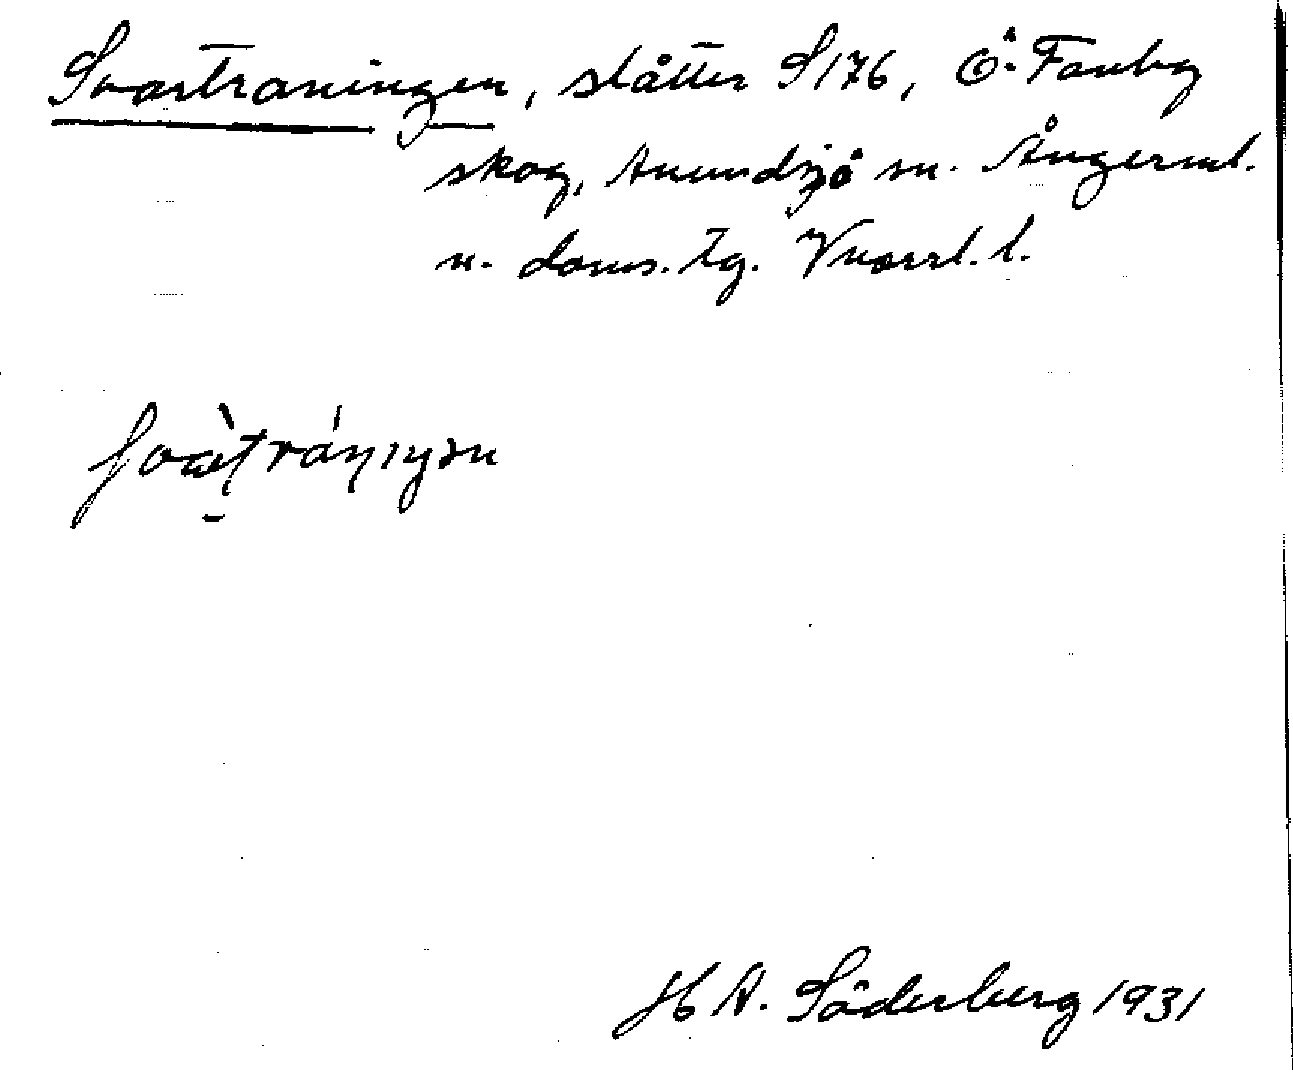 Svartraningen, slåtter S176, Ö. Tanby
skog, Anundsjö sn. Ångerml.
n. doms. tg. Vnorrl. l.
H A. Söderberg 1931